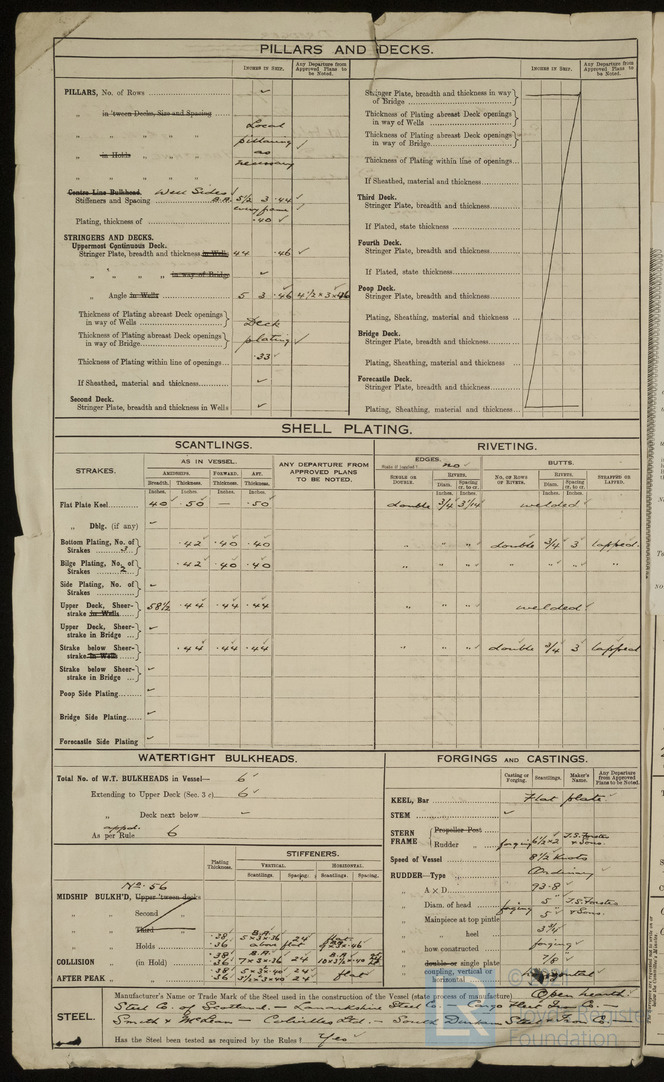 PILLARS AND DECKS.
INCHES IN SHIP.
Any Departure from Approved Plans to be Noted.
INCHES IN SHIP.
Any Departure from Approved Plans to be Noted.
PILLARS, No. of Rows
„ in 'tween Decks, Size and Spacing
„ „ „ „ „
Local
pillaring
as
necessary
„ in Holds „ „
„ „ „ „
Centre Line Bulkhead. Well Sides
Stiffeners and Spacing B.A. 5½ 3 .44
every frame
Plating, thickness of .40
STRINGERS AND DECKS.
Uppermost Continuous Deck.
Stringer Plate, breadth and thickness in Wells 44 .46
„ „ „ „ in way of Bridge
„ Angle in Wells 5 3 .46 4½ x 3 x .46
Thickness of Plating abreast Deck openings in way of Wells
Thickness of Plating abreast Deck openings in way of Bridge
Deck
plating
Thickness of Plating within line of openings .33
If Sheathed, material and thickness
Second Deck.
Stringer Plate, breadth and thickness in Wells
Stringer Plate, breadth and thickness in way of Bridge
Thickness of Plating abreast Deck openings in way of Wells
Thickness of Plating abreast Deck openings in way of Bridge
Thickness of Plating within line of openings
If Sheathed, material and thickness
Third Deck.
Stringer Plate, breadth and thickness
If Plated, state thickness
Fourth Deck.
Stringer Plate, breadth and thickness
If Plated, state thickness
Poop Deck.
Stringer Plate, breadth and thickness
Plating, Sheathing, material and thickness
Bridge Deck.
Stringer Plate, breadth and thickness
Plating, Sheathing, material and thickness
Forecastle Deck.
Stringer Plate, breadth and thickness
Plating, Sheathing, material and thickness
SHELL PLATING.
SCANTLINGS.
RIVETING.
STRAKES.
AS IN VESSEL.
AMIDSHIPS. FORWARD. AFT.
Breadth. Thickness. Thickness. Thickness.
Inches. Inches. Inches. Inches.
ANY DEPARTURE FROM APPROVED PLANS TO BE NOTED.
EDGES. no
SINGLE OR DOUBLE.
RIVETS.
Diam. Spacing cr. to cr.
Inches. Inches.
BUTTS.
NO. OF ROWS OF RIVETS.
RIVETS.
Diam. Spacing cr. to cr.
Inches. Inches.
STRAPPED OR LAPPED.
Flat Plate Keel 40 .50 — .50 double 3/4 welded
„ Dblg. (if any)
Bottom Plating, No. of Strakes 3 .42 .40 .40 „ „ „ double 3/4 3 lapped.
Bilge Plating, No. of Strakes 2 .42 .40 .40 „ „ „ „ „ „ „
Side Plating, No. of Strakes
Upper Deck, Sheerstrake in Wells 58½ .44 .44 .44 „ „ welded
Upper Deck, Sheerstrake in Bridge
Strake below Sheerstrake in Wells .44 .44 .44 „ „ „ double 3/4 3 lapped
Strake below Sheerstrake in Bridge
Poop Side Plating
Bridge Side Plating
Forecastle Side Plating
WATERTIGHT BULKHEADS.
Total No. of W.T. BULKHEADS in Vessel— 6
Extending to Upper Deck (Sec. 3 c) 6
„ Deck next below
appd.
As per Rule 6
Plating Thickness.
STIFFENERS.
VERTICAL. HORIZONTAL.
Scantlings. Spacing. Scantlings. Spacing.
No. 56
MIDSHIP BULKH'D, Upper 'tween decks
„ „ Second „
„ „ Third „
„ „ Holds .38 .36 24
COLLISION „ (in Hold) .38 .36 B.A. 7 x 3 x .36 24
AFTER PEAK „ „ .38 .36 5 x 3 x .40 24 flat
FORGINGS AND CASTINGS.
Casting or Forging. Scantlings. Maker's Name. Any Departure from Approved Plans to be Noted.
KEEL, Bar Flat plate
STEM
STERN FRAME
Propeller Post
Rudder „ forging 6½ x 2 T.S. Forster & Sons.
Speed of Vessel 8½ Knots
RUDDER—Type Ordinary
„ A x D 93.8
„ Diam. of head forging 5 T.S. Forster & Sons.
„ Mainpiece at top pintle 5
„ „ heel 3¾
„ how constructed forging
„ double or single plate 7/8
„ coupling, vertical or horizontal horizontal
STEEL.
Manufacturer's Name or Trade Mark of the Steel used in the construction of the Vessel (state process of manufacture) Open hearth.
Steel Co. of Scotland. — Lanarkshire Steel Co — Cargo Fleet Iron Co. —
Smith & McLean — Colvilles Ltd. — South Durham Steel & Iron Co. —
Has the Steel been tested as required by the Rules? Yes
LR
Lloyd's Register
Foundation